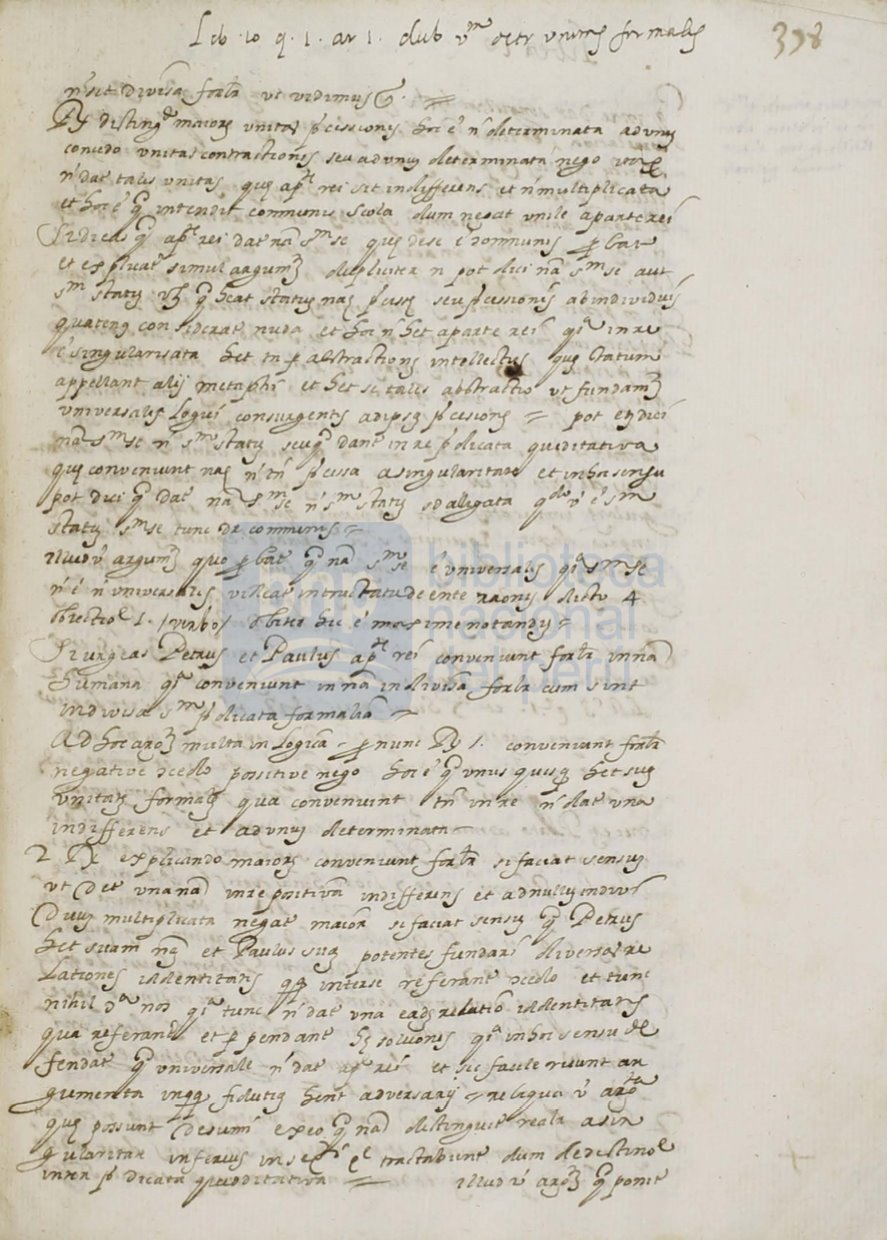 Lib. 10 q. 1. ar 1. dub vm detr unitas formalis 398
n sit divisa forlr ut vidimus
Rx disting maiore unitas pcissionis hoc e n determinata ad unu
concedo unitas contractionis seu ad unu determinata nego
n dat talis unitas que ap rei sit indifferens et n multiplicata
et hoc e q intendit communis Scola dum negat unile a parte rei
Si dicas q ap rei dat na sm se que dese e communis p bar
et explicat simul argum dupliciter n pot dici na sm se aut
sm statu q heat statu nae seu pcissionis ab individuis
quatenq considerat nuda et hoc n het a parte rei qa in re
e singularisata het tn p abstractione intellectus que statum
appellant alij metaphi et het se talis abstractio ut fundam
universalis Logici consurgentis adipsa pcisione = pot dici
na sm se n sm statu seu q dant in re pdicata quiditativa
que conveniunt nae n tn pcissa a singularitate et in hoc sensu
pot dici q dat na sm se n sm statu sed aligata qdo v e sm
statu sm se tunc de communis
illud v argum quo p bat q na sm se e universalis qa sm se
n e n universalis videat in tractatu de ente raonis dicto 4
obiectioe 1. hic e maxime notandu =
Si urgeas Petrus et Paulus ap rei conveniunt forlr in na
humana qa conveniunt in na indivisa forlr cum sint
indivisa sm pdicata formalia
Ad hoc arg multa in Logica p nunc Rx 1. conveniunt forlr
negative cedo possitive nego hoc e q unus quisq het sua
unitate formale qua conveniunt tn in re n dat una
indifferens et ad unu determinata
2 Rx explicando maiore conveniunt forlr si faciat sensu
ut Det una na in re positiva indifferens et ad nullu indivi
Duu multiplicata negat maior si faciat sensu q Petrus
het suam na et Paulus sua potentes fundari diversas re
lationes iddentitatis q inter se referant cedo et tunc
nihil nos qa tunc n dat una eade relatio iddentitatis
qua referant et p pendant solutionis qa in hoc sensu de
fendat q universale n dat ap rei et sic facile ruunt ar
gumenta fidutia hent adversarij reliqua v
que possunt Desumi ex eo q na distinguit realr a sin
gularitate inferius in tractabunt dum de distinoe
inter pdicata quidditativa = illud v q ponit